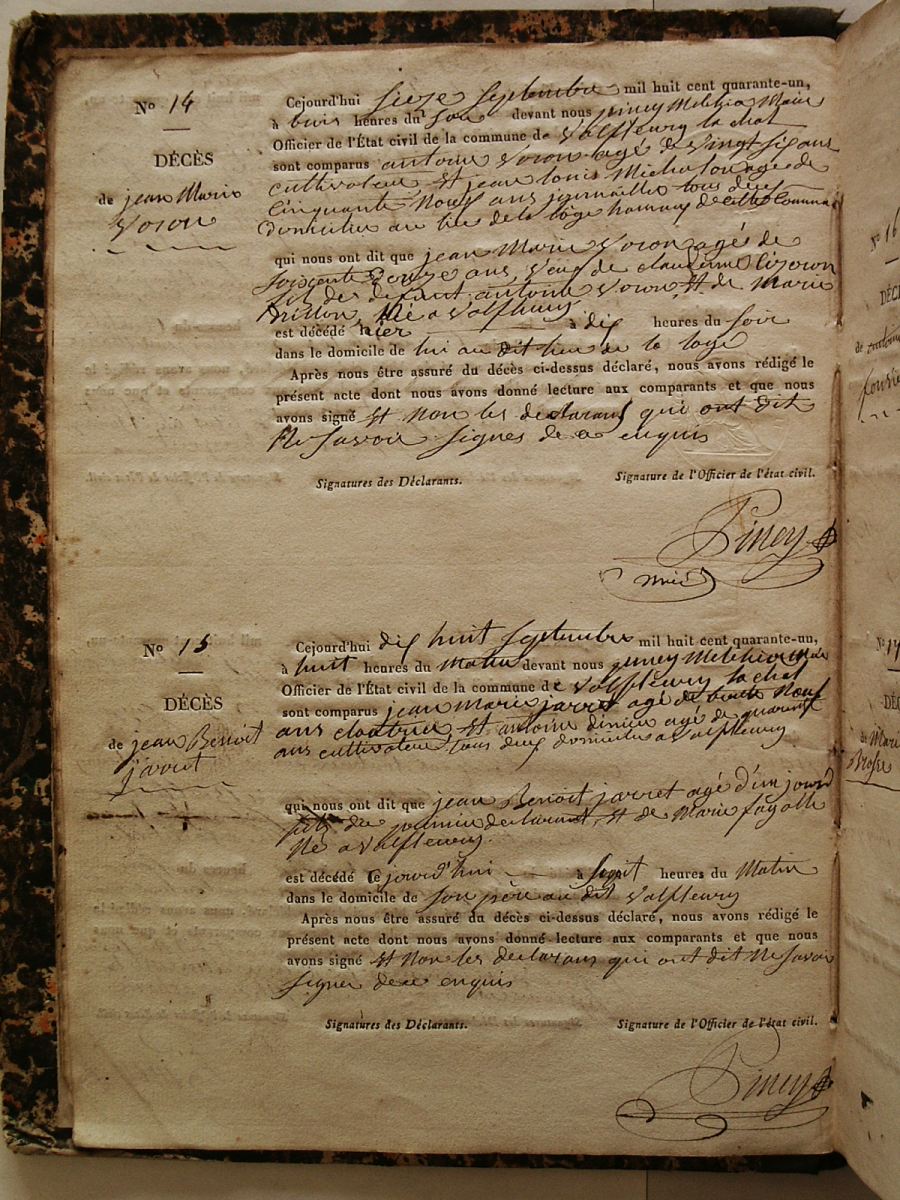 N° 14
DÉCÈS
de jean Marie
Voron
Cejourd'hui seize Septembre mil huit cent quarante-un,
à huis heures du Soir devant nous piney Melchior Maire
Officier de l'État civil de la commune de Valfleury la chal
sont comparus antoine Voron agé de Vingt six ans
cultivateur Et jean louis Michalon agé de
Cinquante Neuf ans journallier tous deux
Domicilier au lieu de la loge hameau de cette Commune
qui nous ont dit que jean Marie Voron agé de
soixante Douze ans, Veuf de claudine
fils des defunt antoine Voron, Et de Marie
Née a Valfleury
est décédé hier à dix heures du Soir
dans le domicile de lui au dit lieu de la loge
Après nous être assuré du décès ci-dessus déclaré, nous avons rédigé le
présent acte dont nous avons donné lecture aux comparants et que nous
avons signé Et Non les declarans qui ont dit
Ne Savoir Signer de ce enquis
Signatures des Déclarants. Signature de l'Officier de l'état civil.
Piney
Maire
N° 15
DÉCÈS
de jean Benoit
jarret
Cejourd'hui dix huit Septembre mil huit cent quarante-un,
à huit heures du Matin devant nous piney Melchior Maire
Officier de l'État civil de la commune de Valfleury la chal
sont comparus jean Marie jarret agé de trente Neuf
ans Et antoine agé de quarante
ans cultivateur tous deux domicilier a Valfleury
qui nous ont dit que jean Benoit jarret agé d'un jour
fils du premier declarant, Et de Marie fayolle
Né a Valfleury.
est décédé Cejourd'hui à Sept heures du Matin
dans le domicile de Son père au dit Valfleury
Après nous être assuré du décès ci-dessus déclaré, nous avons rédigé le
présent acte dont nous avons donné lecture aux comparants et que nous
avons signé Et Non les declarans qui ont dit Ne Savoir
Signer de ce enquis
Signatures des Déclarants. Signature de l'Officier de l'état civil.
Piney
N° 16
DÉC
de
N° 17
DÉC
de Marie